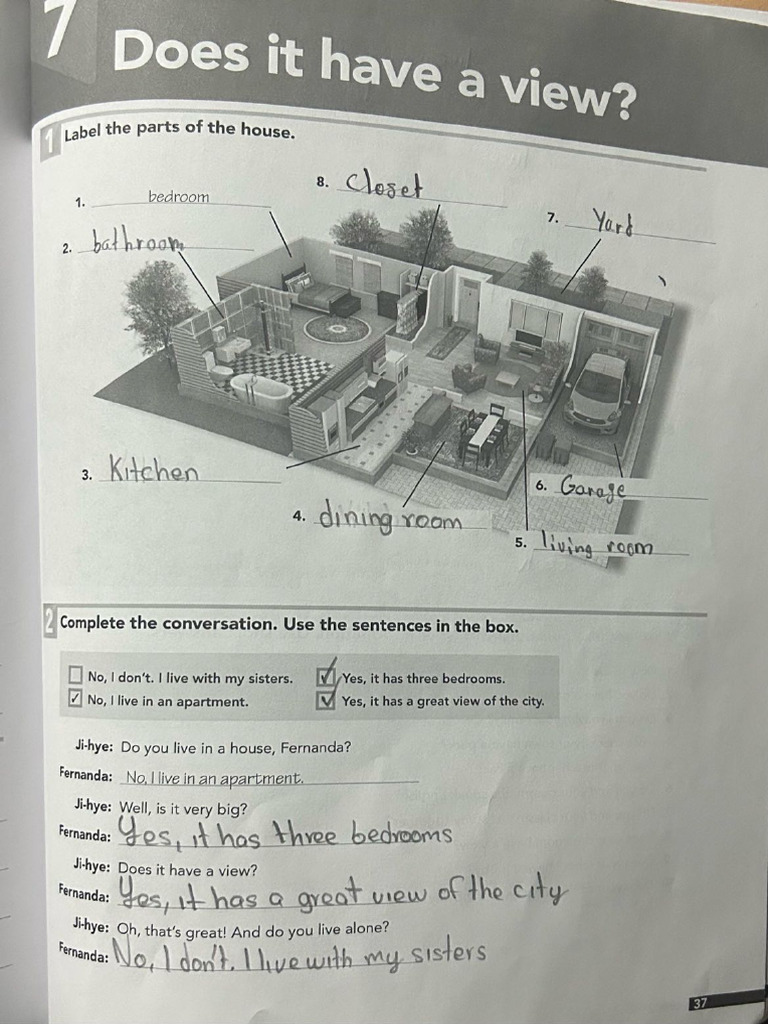 7 Does it have a view?
1 Label the parts of the house.
8. Closet
1. bedroom
7. Yard
2. bathroom
3. Kitchen
6. Garage
4. dining room
5. living room
2 Complete the conversation. Use the sentences in the box.
No, I don't. I live with my sisters. ✓ Yes, it has three bedrooms.
✓ No, I live in an apartment. ✓ Yes, it has a great view of the city.
Ji-hye: Do you live in a house, Fernanda?
Fernanda: No, I live in an apartment.
Ji-hye: Well, is it very big?
Fernanda: Yes, it has three bedrooms
Ji-hye: Does it have a view?
Fernanda: Yes, it has a great view of the city
Ji-hye: Oh, that's great! And do you live alone?
Fernanda: No, I don't. I live with my sisters
37